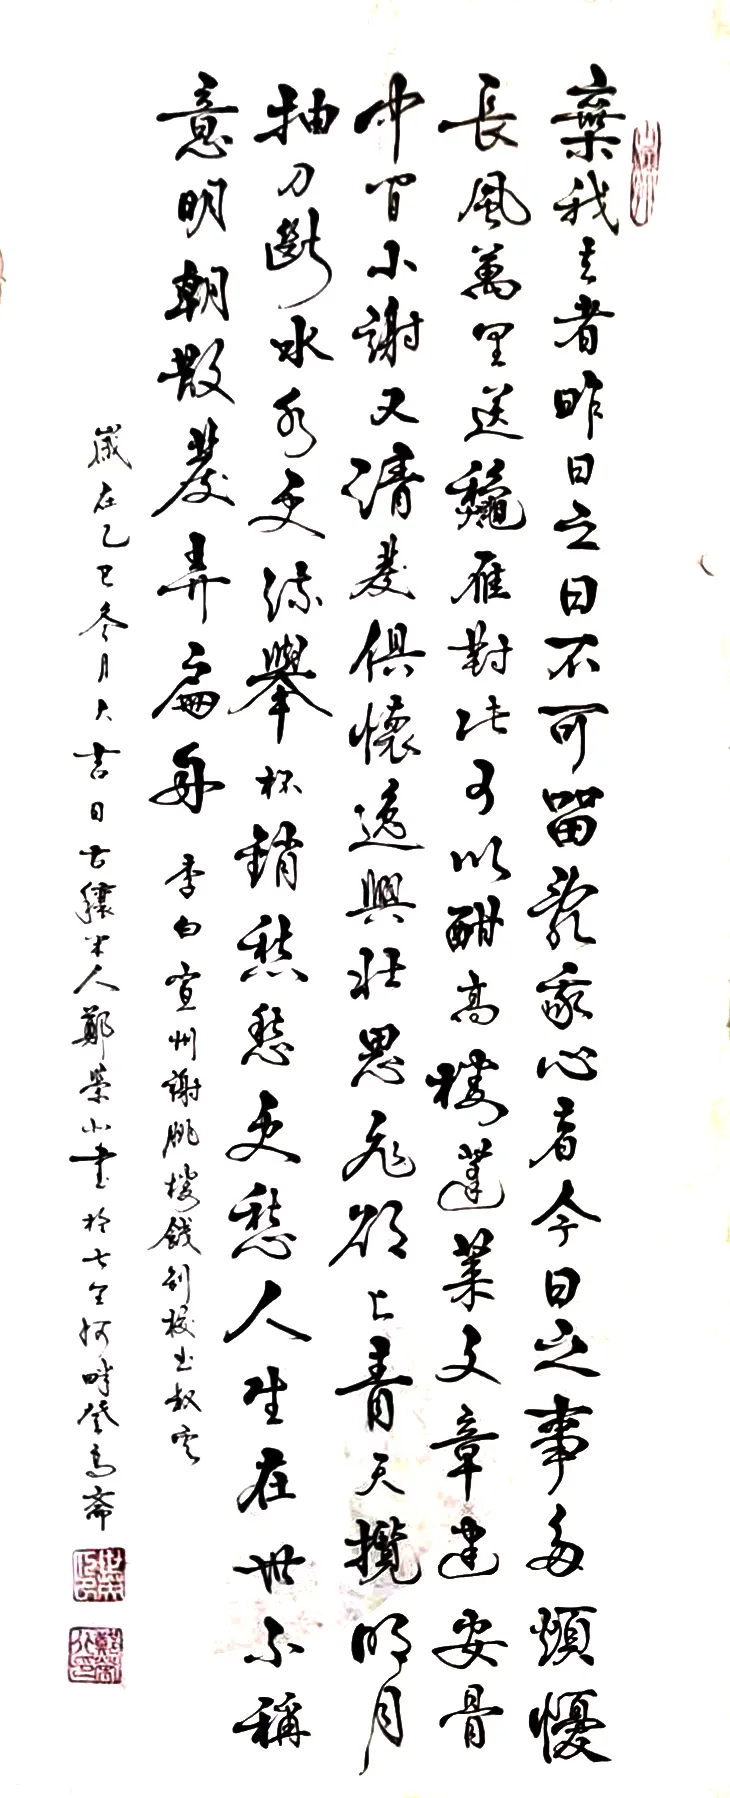 棄我去者昨日之日不可留亂我心者今日之事多煩憂
長風萬里送龝雁對此可以酣高樓蓬萊文章建安骨
中間小謝又清發俱懷逸興壯思飛欲上青天攬明月
抽刀斷水水更流舉杯銷愁愁更愁人生在世不稱
意明朝散髮弄扁舟 李白宣州謝脁樓餞別校書叔雲
歲在乙巳冬月大吉日古穰半人鄭榮小書於七里河畔登高齋